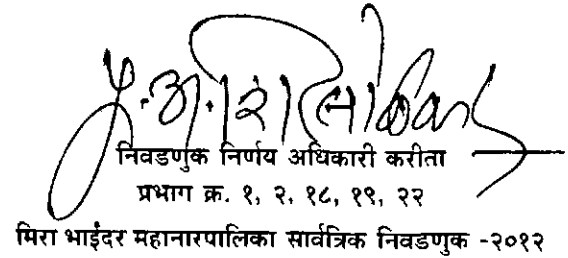 निवडणुक निर्णय अधिकारी करीता
प्रभाग क्र. १, २, १८, १९, २२
मिरा भाईंदर महानारपालिका सार्वत्रिक निवडणुक -२०१२